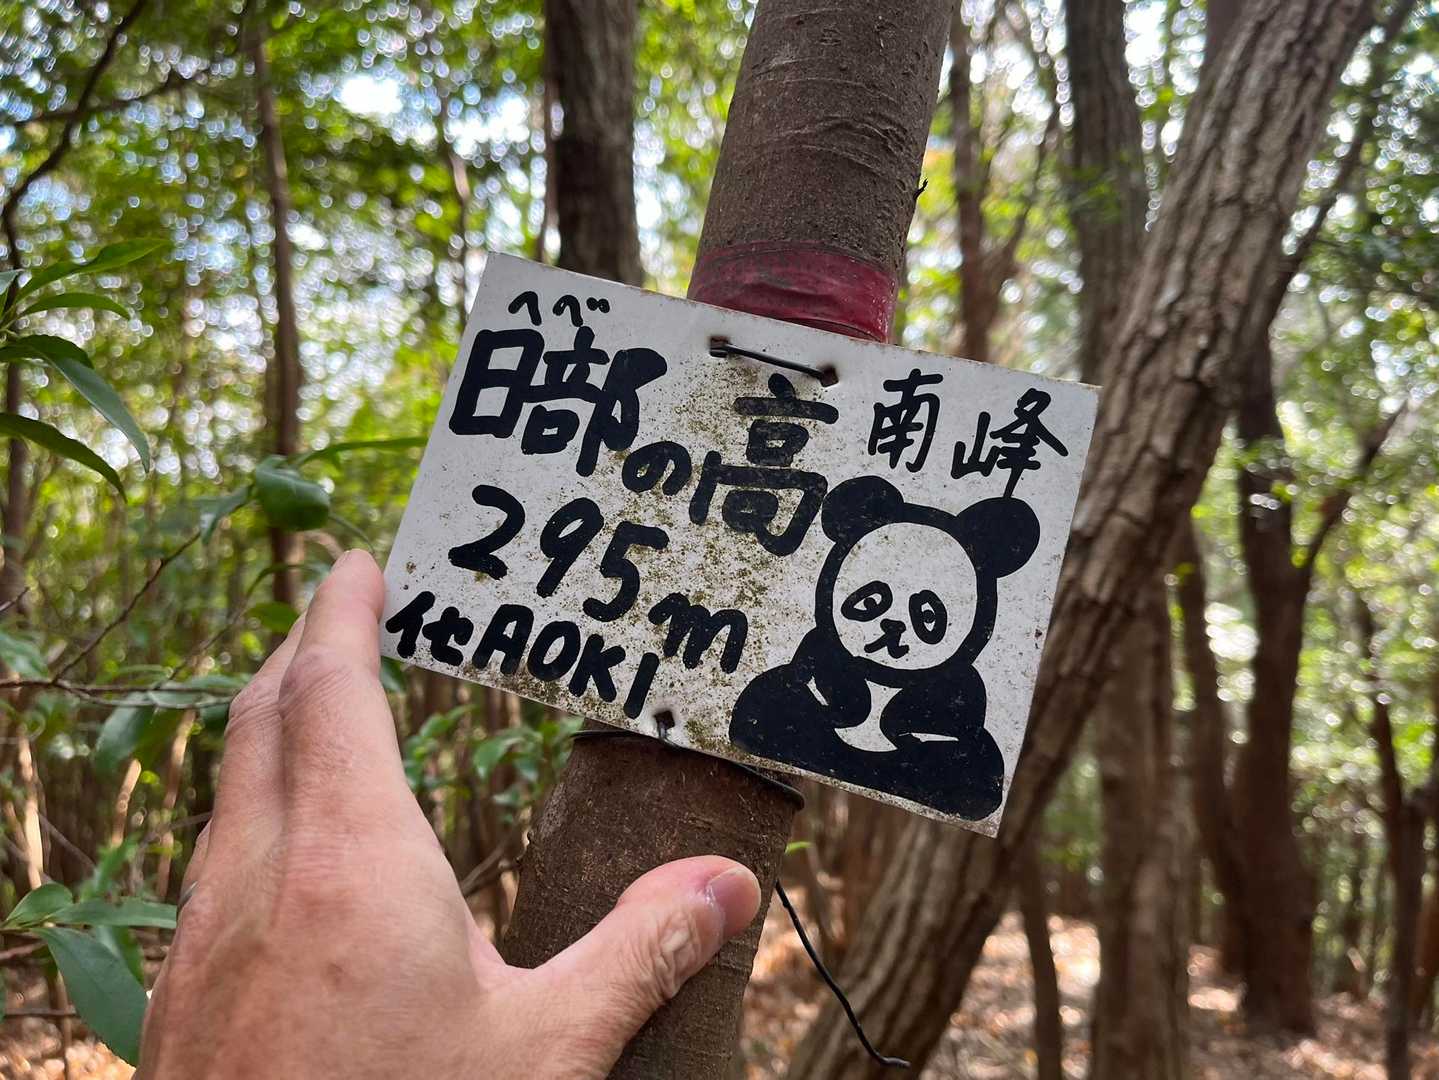 へべ
日部の高 南峰
295m
代AOKI